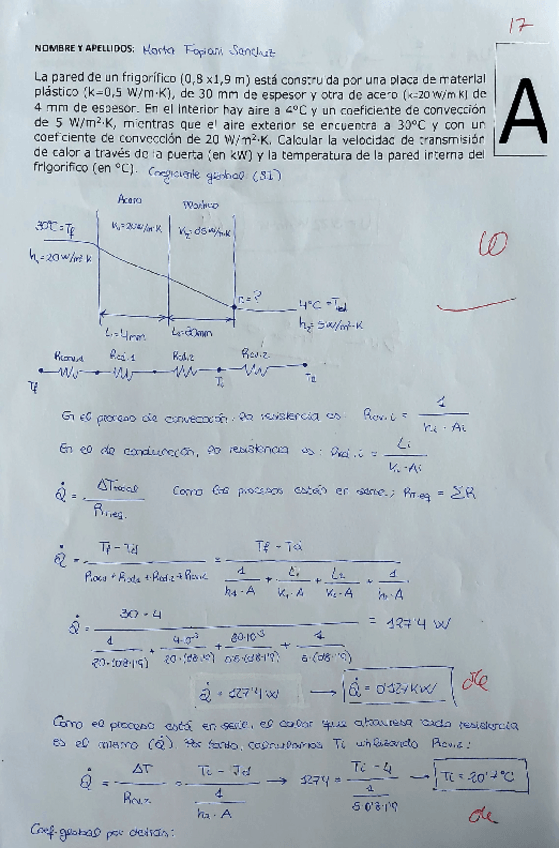 17
NOMBRE Y APELLIDOS: Marta Sanchez
La pared de un frigorífico (0,8 x1,9 m) está construida por una placa de material
plástico (k=0,5 W/m·K), de 30 mm de espesor y otra de acero (k=20 W/m·K) de
4 mm de espesor. En el interior hay aire a 4ºC y un coeficiente de convección
de 5 W/m²·K, mientras que el aire exterior se encuentra a 30ºC y con un
coeficiente de convección de 20 W/m²·K. Calcular la velocidad de transmisión
de calor a través de la puerta (en kW) y la temperatura de la pared interna del
frigorífico (en ºC). Coeficiente global (SI)
A
Acero
Plástico
30ºC = Tf
K₁=20W/m·K
K₂=0'5W/m·K
h₁=20W/m²·K
Ti=?
4ºC =
h₂=5W/m²·K
L₁=4mm
L₂=30mm
10
Rconv.1 Rcd.1 Rcd.2 Rcv.2
Tf Ti
En el proceso de convección, la resistencia es: Rcv.i = 1 / hi · Ai
En el de conducción, la resistencia es: Rcd.i = Li / Ki · Ai
Q̇ = ΔTtotal / RT.eq. Como los procesos están en serie; RT.eq = ΣR
Q̇ = Tf - Td / Rcv.1 + Rcd.1 + Rcd.2 + Rcv.2 = Tf - Td / 1/h₁·A + L₁/K₁·A + L₂/K₂·A + 1/h₂·A
Q̇ = 30 - 4 / 1/20·(0'8·1'9) + 4·10⁻³/20·(0'8·1'9) + 30·10⁻³/0'5·(0'8·1'9) + 1/5·(0'8·1'9) = 127'4 W
Q̇ = 127'4 W → Q̇ = 0'127 KW
Como el proceso está en serie, el calor que atraviesa cada resistencia
es el mismo (Q̇). Por tanto, calculamos Ti utilizando Rcv.2:
Q̇ = ΔT / Rcv.2 = Ti - Td / 1/h₂·A → 127'4 = Ti - 4 / 1/5·0'8·1'9 → Ti = 20'7ºC
Coef. global por detrás: